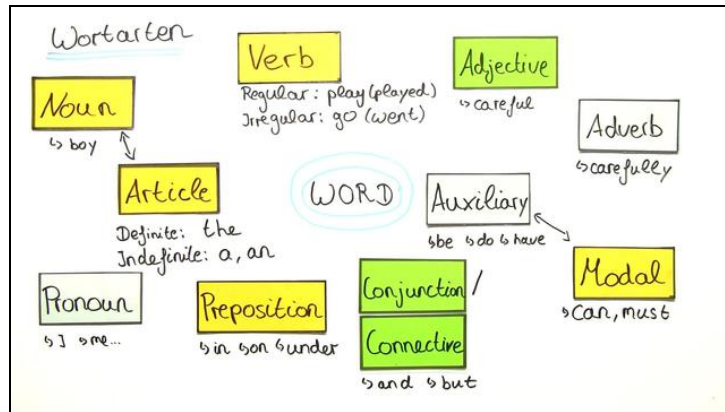 Wortarten
Verb
Regular: play (played)
Irregular: go (went)
Adjective
↳ careful
Noun
↳ boy
Adverb
↳ carefully
Article
Definite: the
Indefinite: a, an
WORD
Auxiliary
↳ be ↳ do ↳ have
Modal
↳ Can, must
Pronoun
↳ I ↳ me...
Preposition
↳ in ↳ on ↳ under
Conjunction /
Connective
↳ and ↳ but